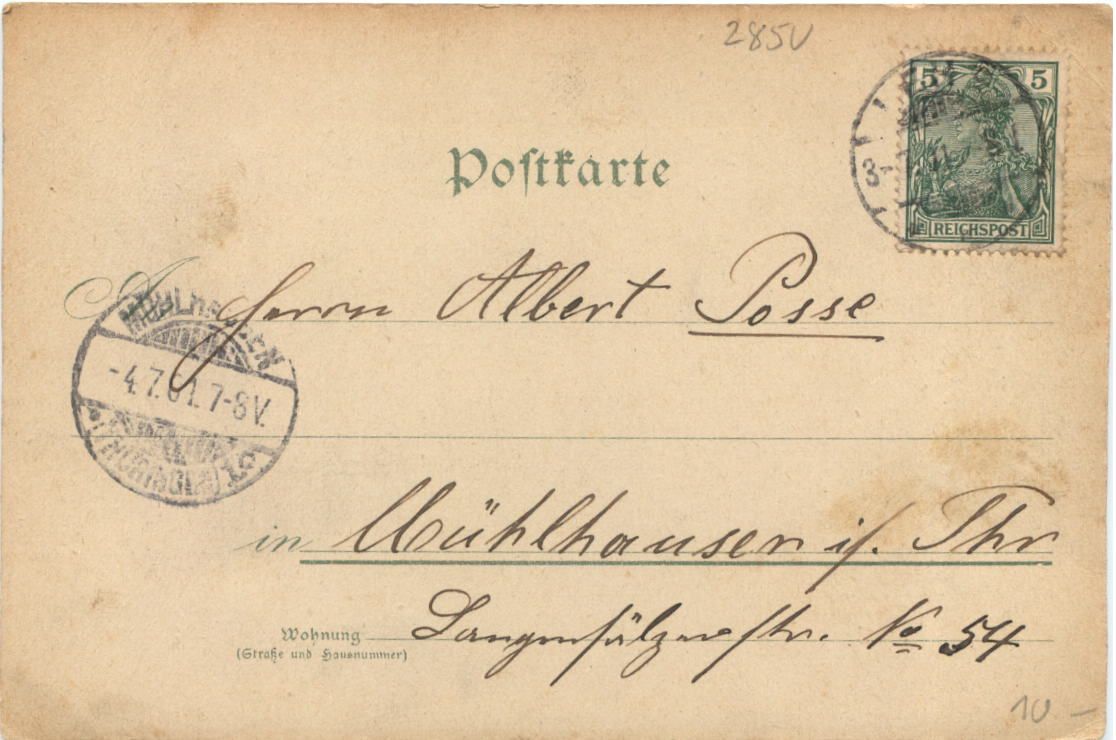 285U
5 5
REICHSPOST
Postkarte
Herrn Albert Posse
MÜHLHAUSEN
-4.7.01.7-8V.
(THÜRINGEN)
in Mühlhausen i/. Thr
Wohnung Langensälzerstr. No 54
(Straße und Hausnummer)
10 –